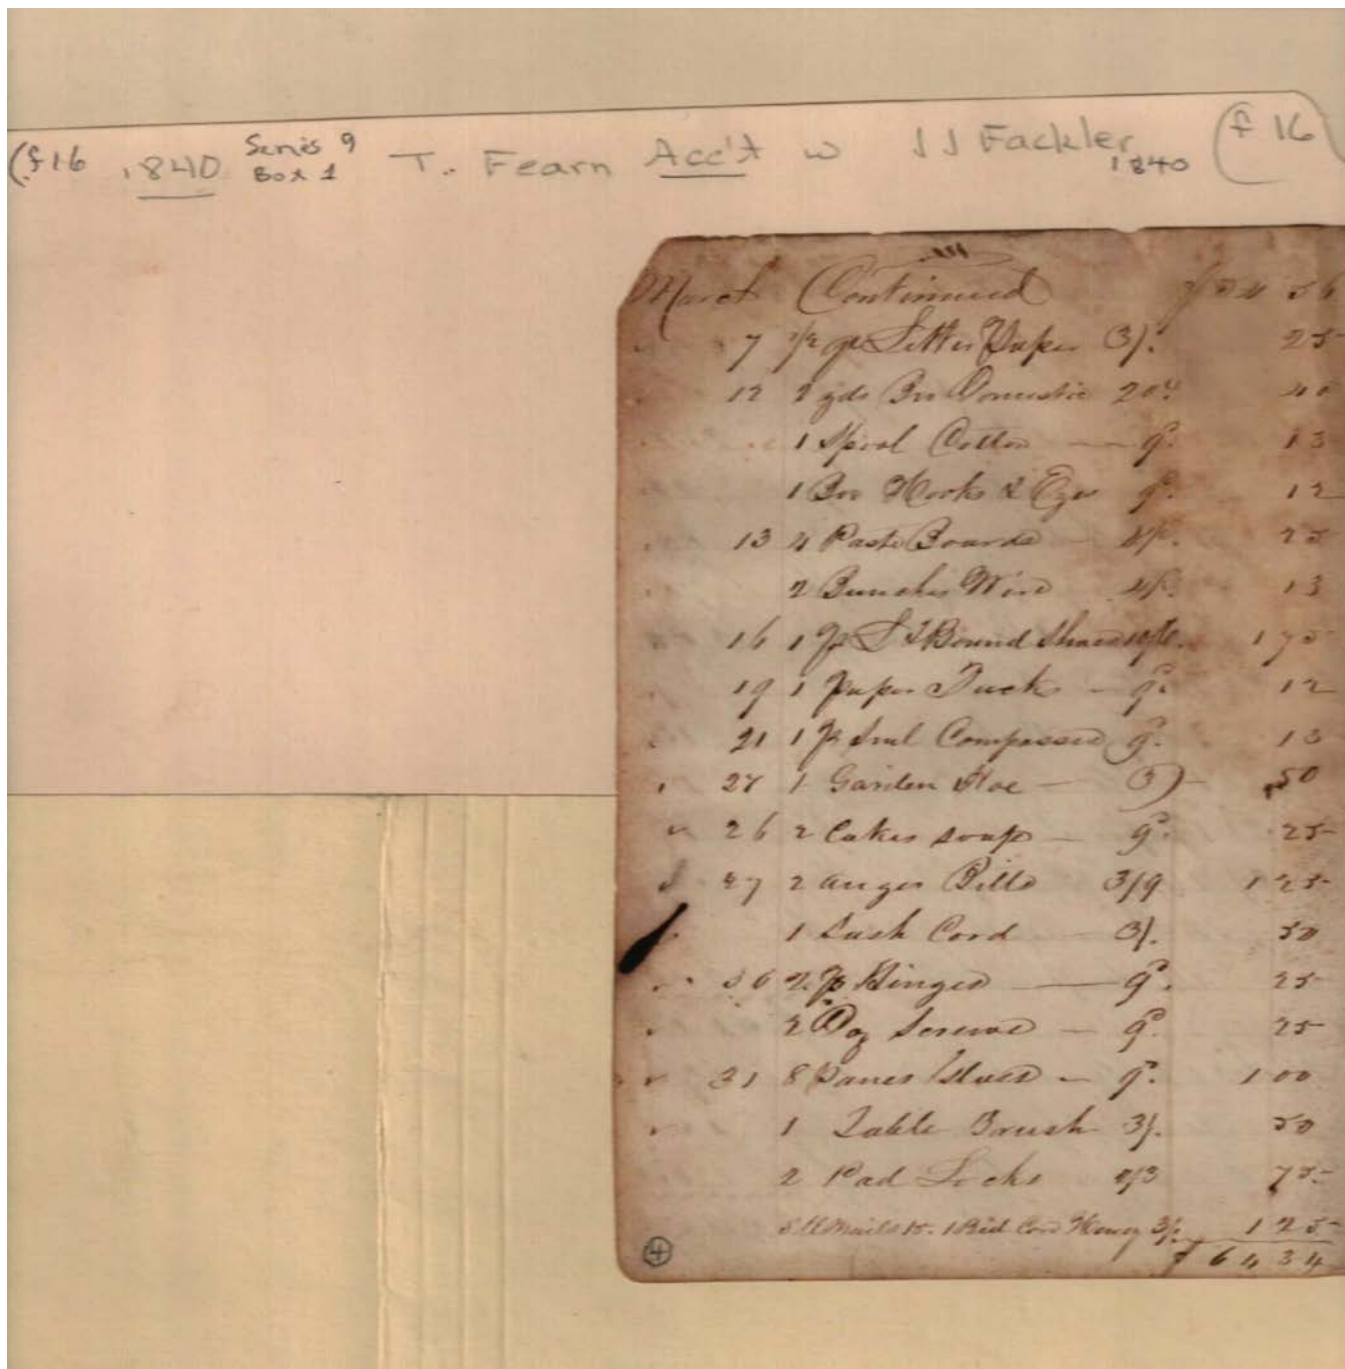 (f16 1840 Series 9 Box 1 T. Fearn Acc't w J J Fackler 1840 (f 16
March Continued $54 56
7 1/2 qr Letter Paper 3/. 25
12 2 yds Bro Domestic 20c 40
1 Spool Cotton — 9d. 13
1 Box Hooks & Eyes 9d. 12
13 4 Paste Boards — 4d. 25
2 Bunches Wire 4d. 13
16 1 pr Bound Shoes 1 75
19 1 paper Tacks — 9d. 12
21 1 pr Compasses 9d. 13
1 Garden Hoe — 3/ — 50
26 2 Cakes soap — 9d. 25
27 2 auger Bitts 3/9 1 25
1 Sash Cord — 3/. 50
30 2 pr Hinges — 9d. 25
2 Doz Screws — 9d. 25
31 8 Panes Glass — 9d. 1 00
1 Table Brush 3/. 50
2 Pad Locks 2/3 75
5 lb Nails 15. 1 Bed Cord 3/. 1 25
4 $ 64 34